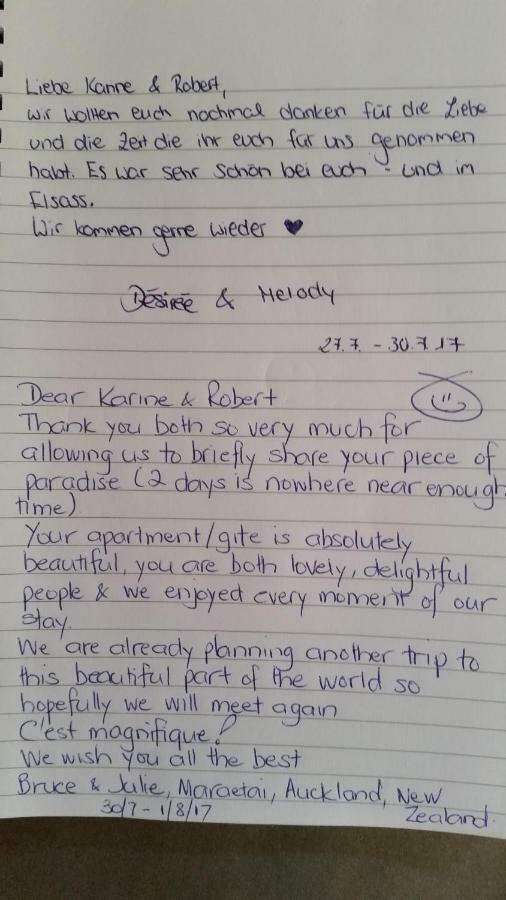 Liebe Karine & Robert,
wir wollten euch nochmal danken für die Liebe
und die Zeit die ihr euch für uns genommen
habt. Es war sehr schön bei euch - und im
Elsass.
Wir kommen gerne wieder ♥
Désirée & Melody
27.7. - 30.7.17
Dear Karine & Robert
Thank you both so very much for
allowing us to briefly share your piece of
paradise (2 days is nowhere near enough
time)
Your apartment/gite is absolutely
beautiful, you are both lovely, delightful
people & we enjoyed every moment of our
stay.
We are already planning another trip to
this beautiful part of the world so
hopefully we will meet again
C'est magnifique!
We wish you all the best
Bruce & Julie, Maraetai, Auckland, New
Zealand.
30/7 - 1/8/17